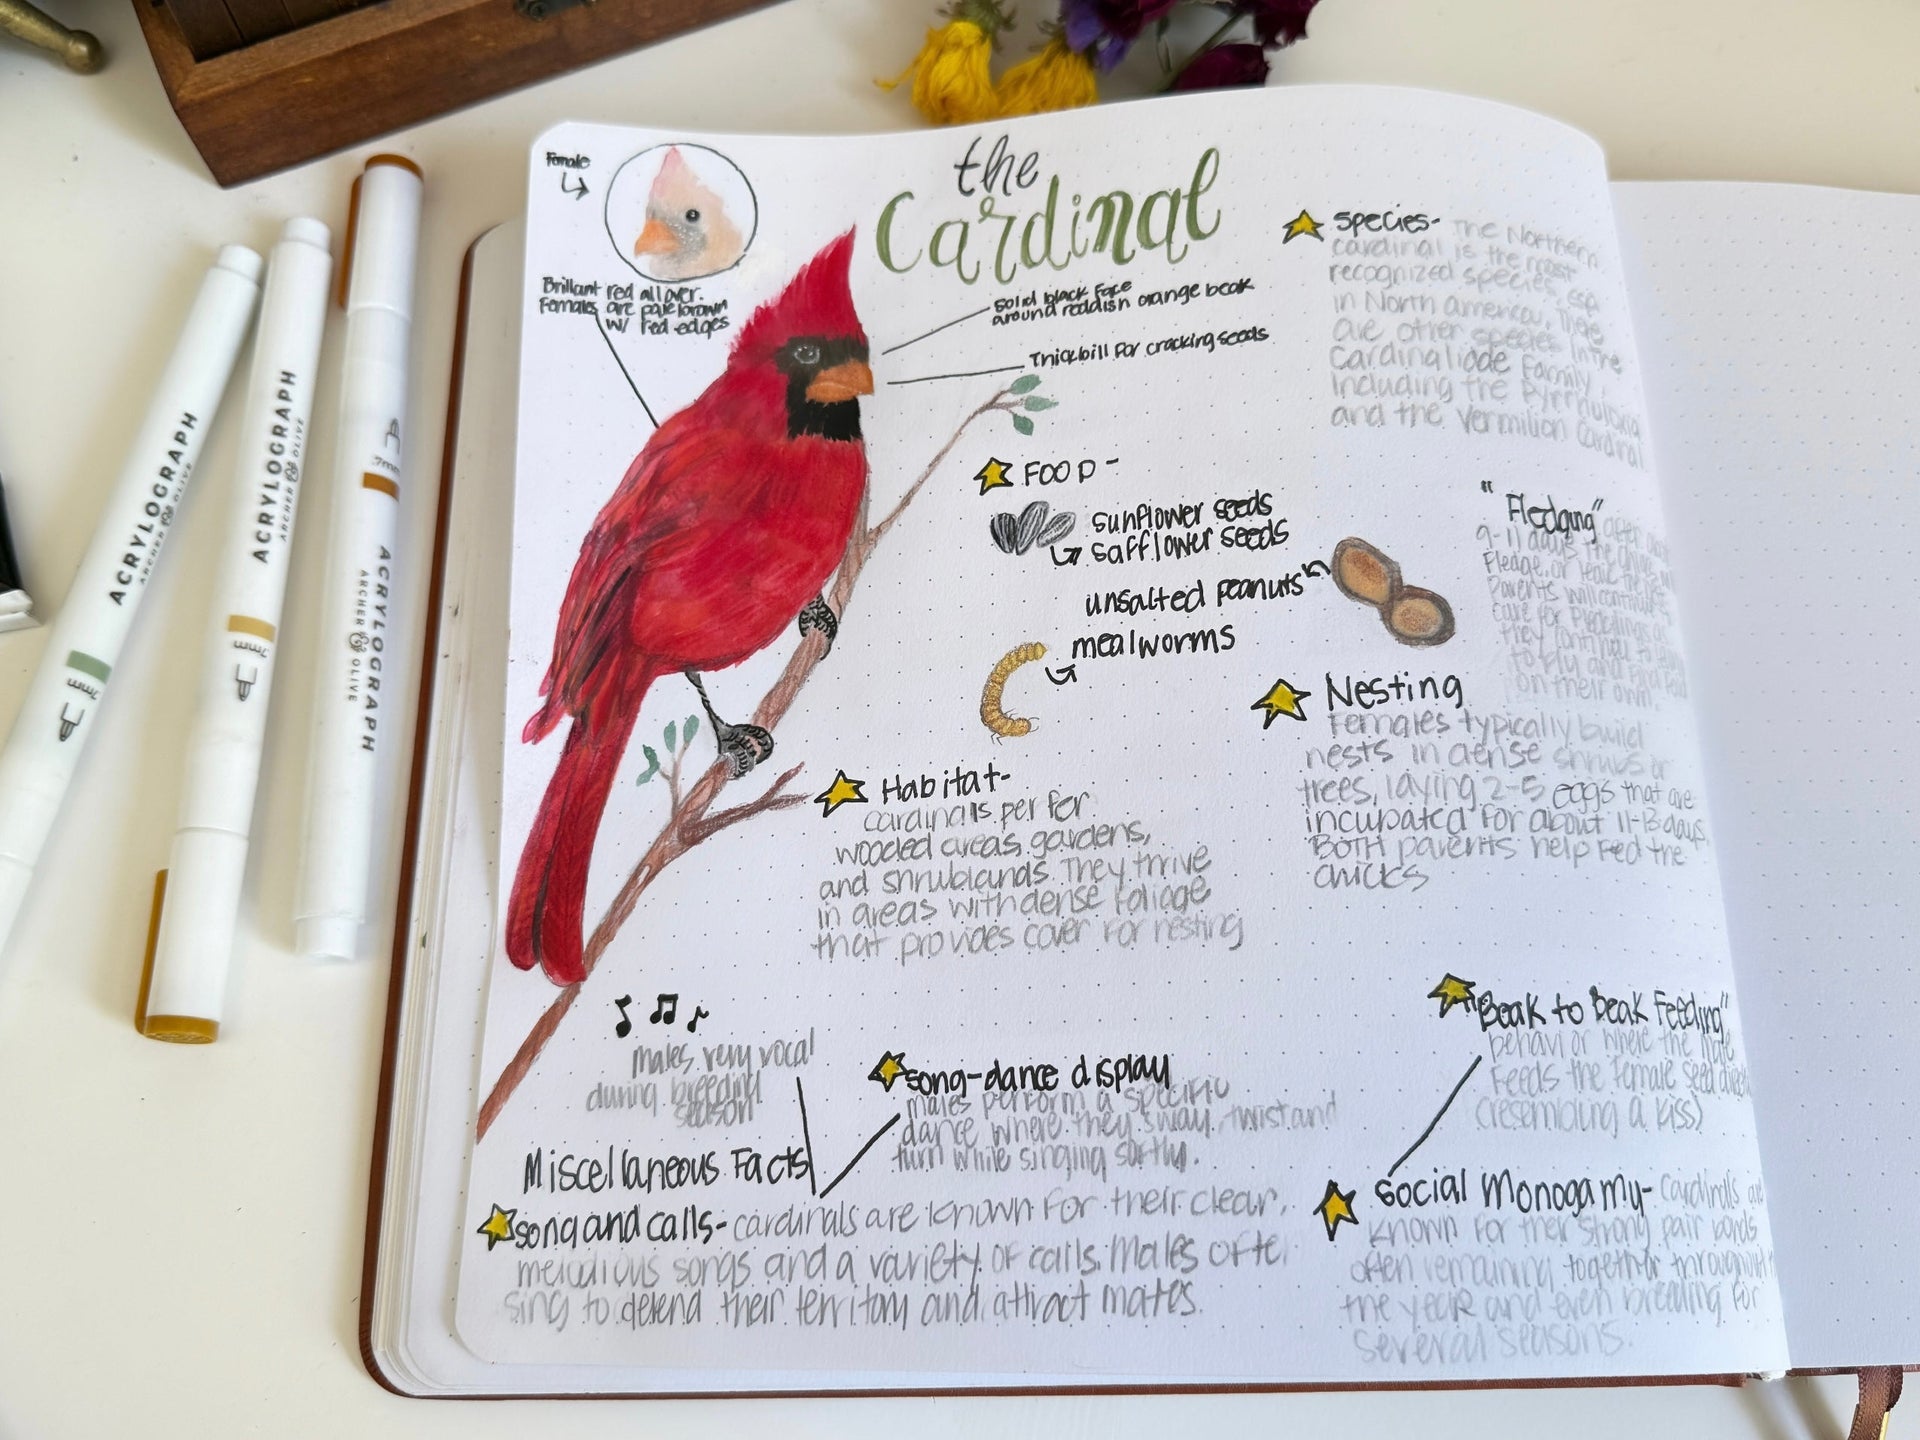 Female
the
Cardinal
Brillant red all over.
Females are pale brown
w/ red edges
Solid black face
around reddish orange beak
Thick bill for cracking seeds
Species- The Northern
cardinal is the most
recognized species, esp.
in North america. There
are other species in the
Cardinaliade Family,
including the Pyrrhuloxia
and the Vermilion Cardinal
FOOD-
sunflower seeds
safflower seeds
unsalted peanuts
mealworms
"Fledging" after
9-11 days the
Fledge, or leave the
Parents will continue
care for
they continue to
to fly and find food
on their own.
Nesting
Females typically build
nests in dense shrubs or
trees, laying 2-5 eggs that are
incubated for about 11-13 days.
BOTH parents help fed the
chicks
Habitat-
cardinals perfer
wooded areas, gardens,
and shrublands. They thrive
in areas with dense foliage
that provides cover for nesting
males very vocal
during breeding
season
song-dance display
males perform a specific
dance where they sway, twist and
turn while singing softly.
"Beak to Beak Feeding"
behavior where the male
Feeds the female seed
(resembling a kiss)
Miscellaneous Facts
song and calls- cardinals are known for their clear,
melodious songs and a variety of calls. Males ofte
sing to defend their territory and attract mates.
Social Monogamy- Cardinals are
known for their strong pair bonds
often remaining together throughout
the year and even breeding for
several seasons.
ACRYLOGRAPH
ARCHER & OLIVE
.7mm
ACRYLOGRAPH
ARCHER & OLIVE
.7mm
ACRYLOGRAPH
ARCHER & OLIVE
.7mm